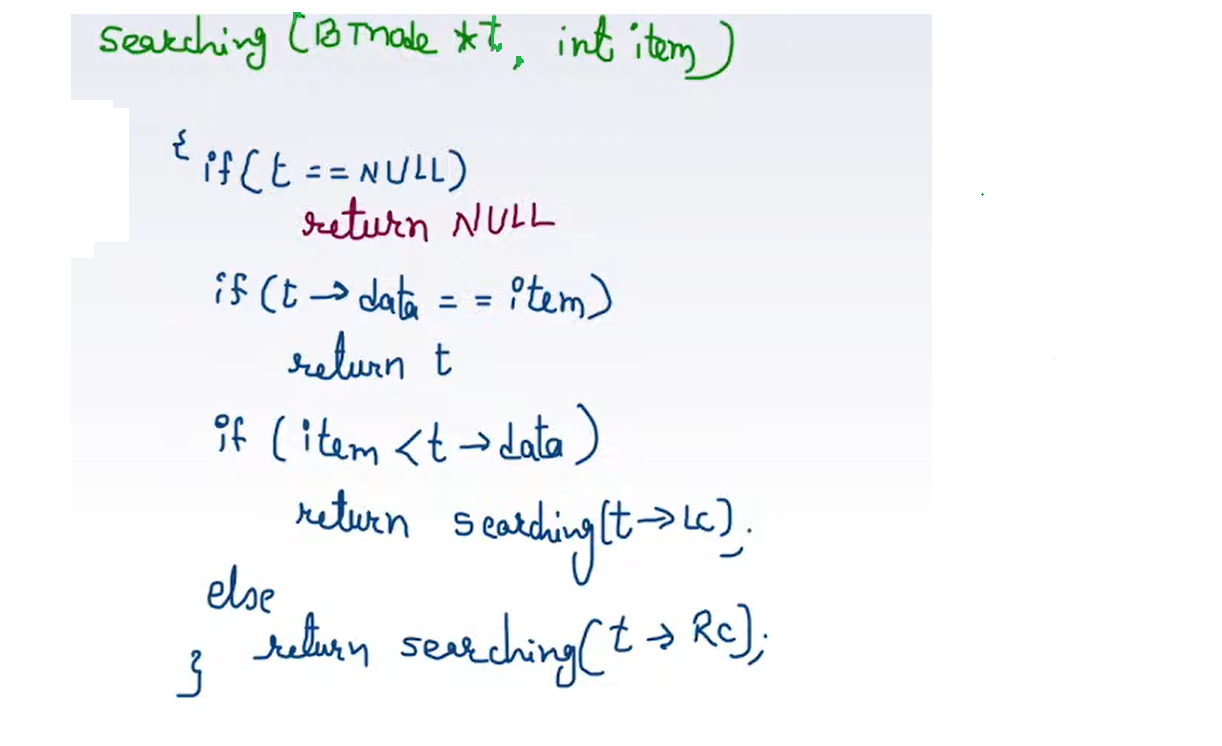 searching (BTnode *t, int item)
{ if(t == NULL)
return NULL
if (t → data == item)
return t
if (item < t → data)
return searching(t → LC);
else
return searching(t → RC);
}